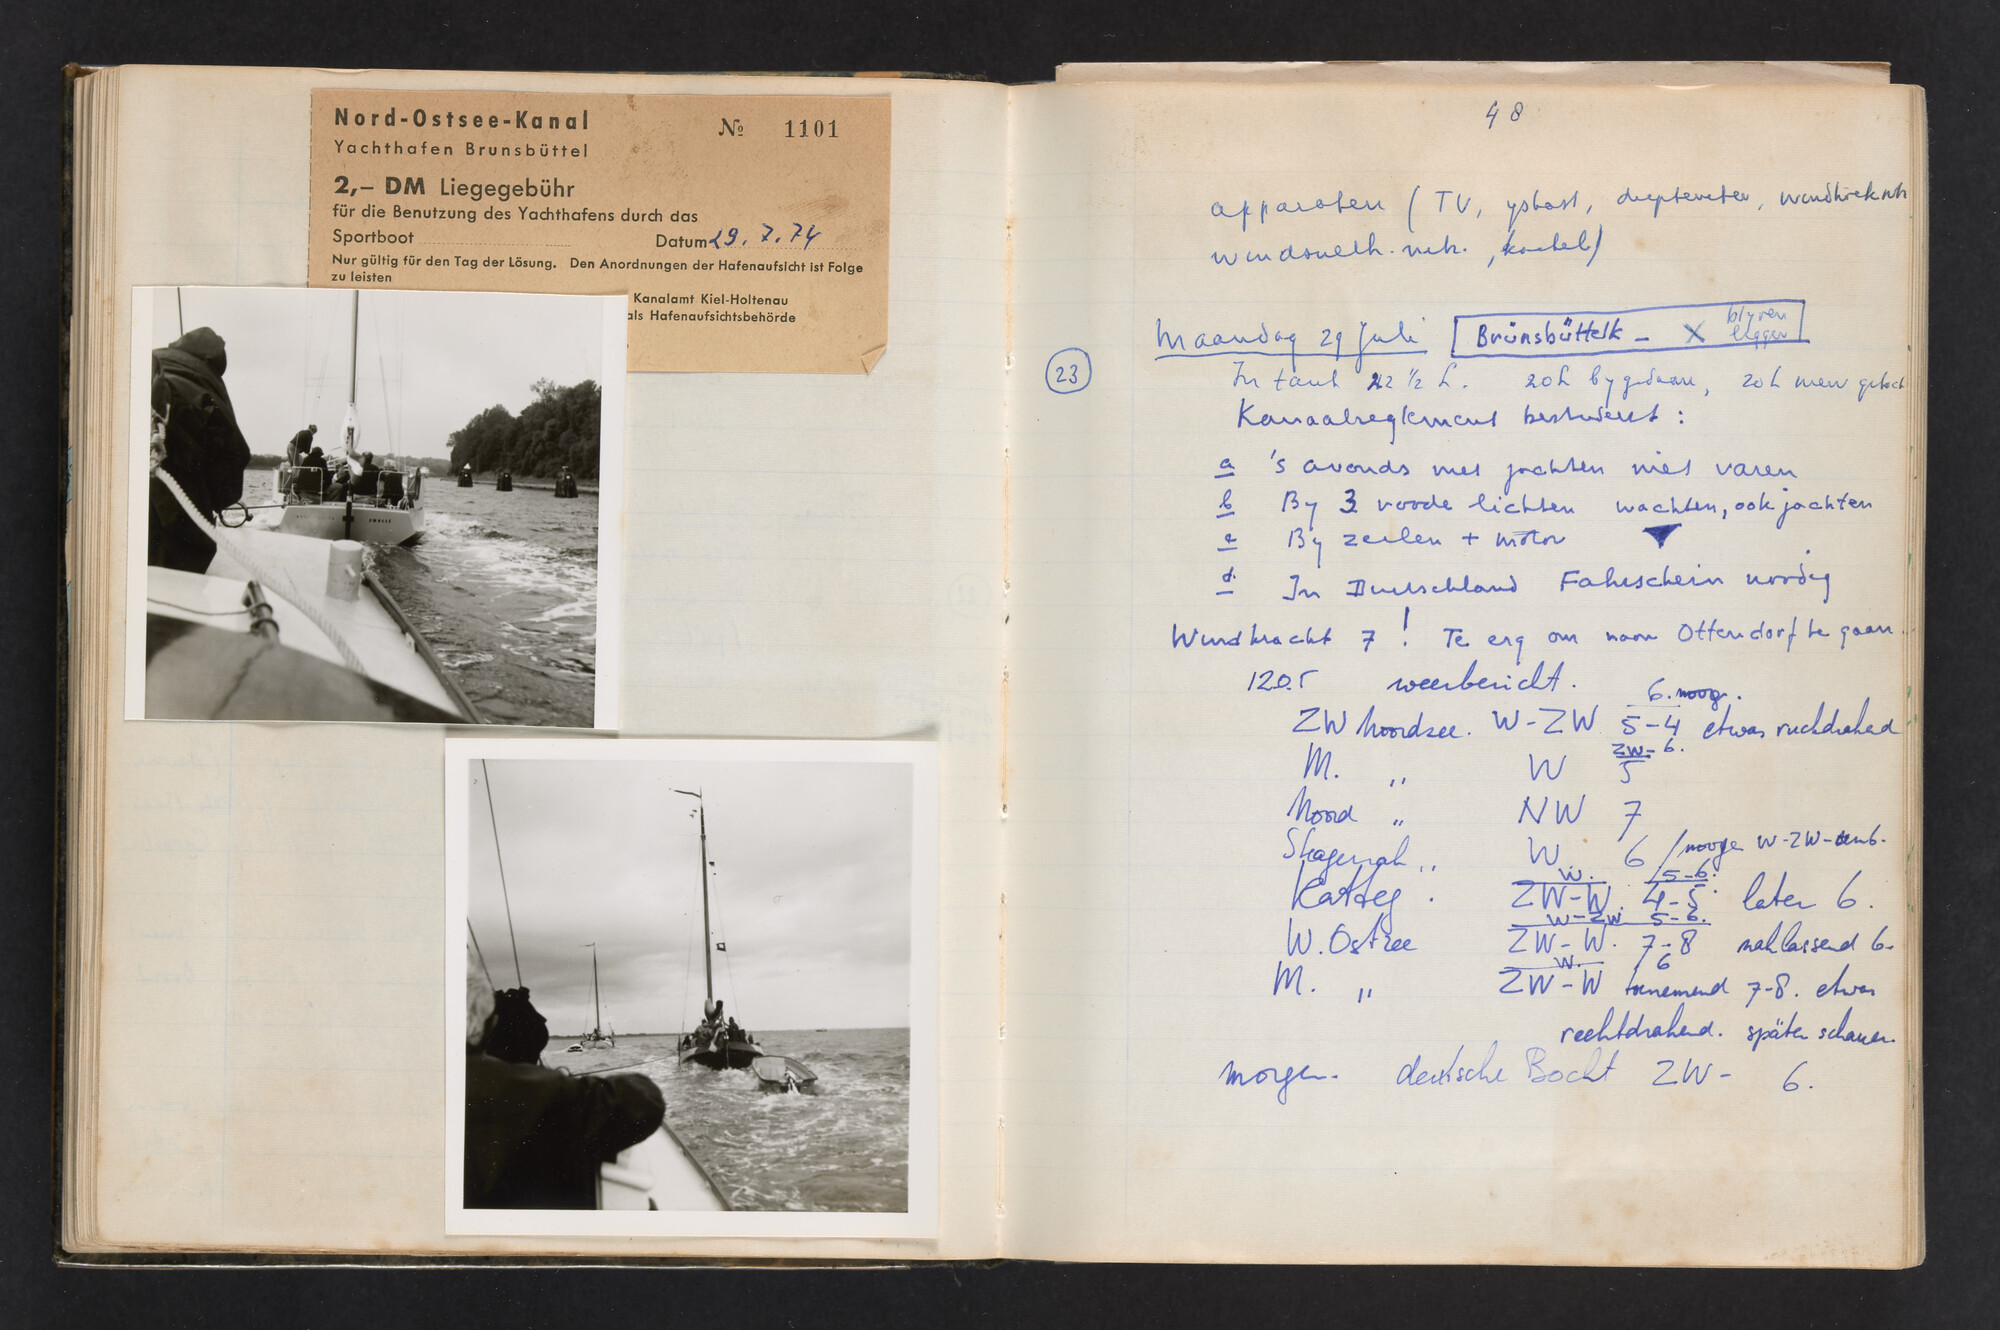 Nord-Ostsee-Kanal
№ 1101
Yachthafen Brunsbüttel
2,– DM Liegegebühr
für die Benutzung des Yachthafens durch das
Sportboot Datum 29.7.74
Nur gültig für den Tag der Lösung. Den Anordnungen der Hafenaufsicht ist Folge
zu leisten
Kanalamt Kiel-Holtenau
als Hafenaufsichtsbehörde
48
apparaten (TV, yskast, dieptemeter, windtrek
windsnelh. , kachel)
Maandag 29 Juli Brünsbüttelk – X blyven
liggen
23
In tank 22 ½ L. 20L bygedaan, 20L
Kanaalreglement bestudeert:
a 's avonds met jachten niet varen
b By 3 roode lichten wachten, ook jachten
c By zeilen + motor ▼
d. In Deutschland Fahrschein nordig
Windkracht 7! Te erg om naar Ottendorf te gaan.
1205 weerbericht.
6. morg.
ZW Noordzee. W-ZW 5-4 etwas ruckdrehed
ZW- 6.
M. ,, W 5
Noord ,, NW 7
Skagerrak ,, W. 6 / morge W-ZW-
W. 5-6.
Katteg. ZW-W. 4-5. later 6.
W-ZW 5-6.
W. Ostzee ZW-W. 7-8 nahlassend 6.
W. 6
M. ,, ZW-W tonemend 7-8. etwas
rechtdrahend. später schauer.
morgen. deutsche Bocht ZW- 6.